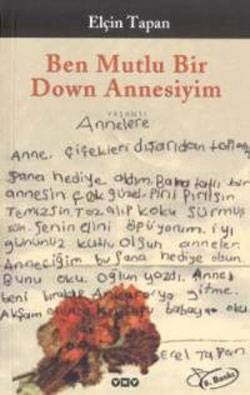 Elçin Tapan
Ben Mutlu Bir
Down Annesiyim
YAŞANTI
Annelere
Anne, Çiçekleri dışarıdan toplang
sana hediye aldım. Bana tatlı bir
annesin çok güzel. Pırıl pırılsın
Temizsin. Toz alıp koku sürmüş
sün. Senin elini öpüyorum. iyi
gününüz kutlu olsun anneler
Anneciğim bu sana hediye olsun.
Bunu oku. oğlun yazdı. Anne
beni bırakıp Ankara'ya gitme.
Akşam
babaya oku.
Erel Tapan
YKY
8. Baskı